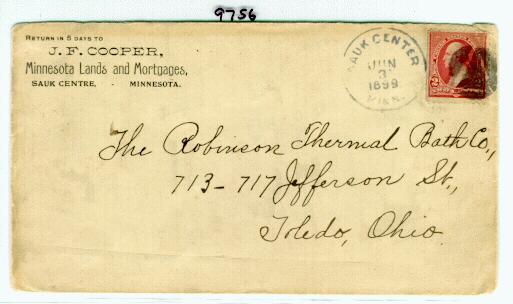 9756
RETURN IN 5 DAYS TO
J. F. COOPER,
Minnesota Lands and Mortgages,
SAUK CENTRE, - MINNESOTA.
SAUK CENTER
JUN
3
1899
MINN.
2
The Robinson Thermal Bath Co.,
713-717 Jefferson St.,
Toledo, Ohio.